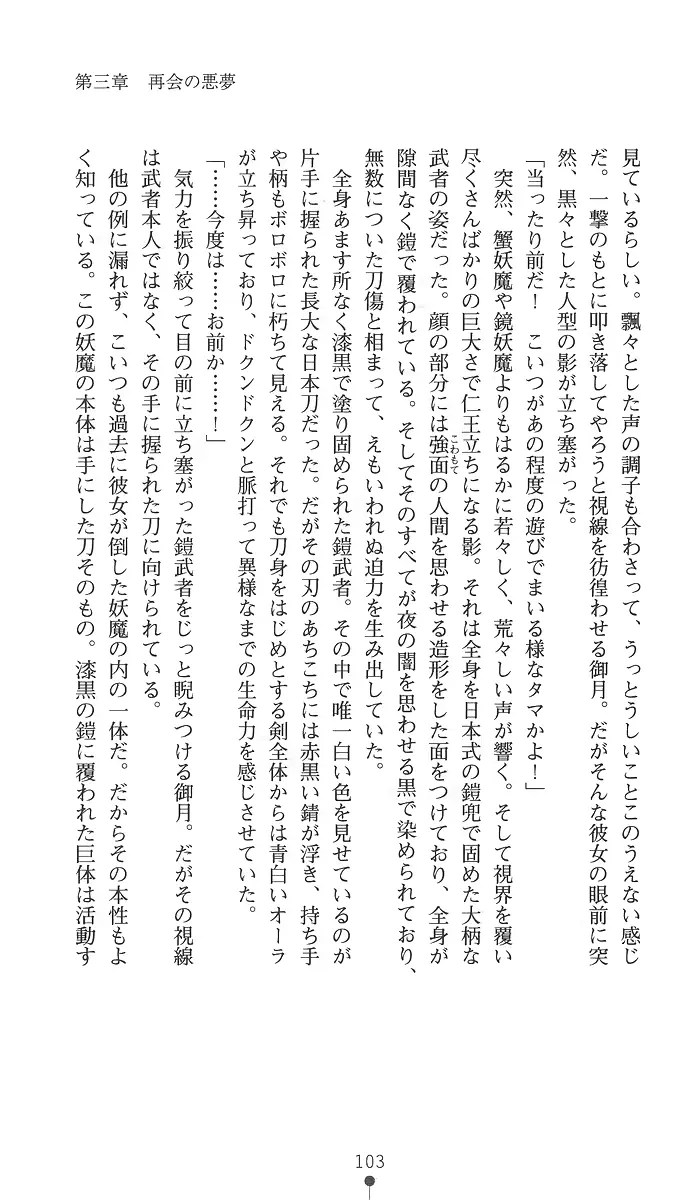 第三章　再会の悪夢
見ているらしい。飄々とした声の調子も合わさって、うっとうしいことこのうえない感じ
だ。一撃のもとに叩き落してやろうと視線を彷徨わせる御月。だがそんな彼女の眼前に突
然、黒々とした人型の影が立ち塞がった。
「当ったり前だ！　こいつがあの程度の遊びでまいる様なタマかよ！」
　突然、蟹妖魔や鏡妖魔よりもはるかに若々しく、荒々しい声が響く。そして視界を覆い
尽くさんばかりの巨大さで仁王立ちになる影。それは全身を日本式の鎧兜で固めた大柄な
武者の姿だった。顔の部分には強面こわもての人間を思わせる造形をした面をつけており、全身が
隙間なく鎧で覆われている。そしてそのすべてが夜の闇を思わせる黒で染められており、
無数についた刀傷と相まって、えもいわれぬ迫力を生み出していた。
　全身あます所なく漆黒で塗り固められた鎧武者。その中で唯一白い色を見せているのが
片手に握られた長大な日本刀だった。だがその刃のあちこちには赤黒い錆が浮き、持ち手
や柄もボロボロに朽ちて見える。それでも刀身をはじめとする剣全体からは青白いオーラ
が立ち昇っており、ドクンドクンと脈打って異様なまでの生命力を感じさせていた。
「……今度は……お前か……！」
　気力を振り絞って目の前に立ち塞がった鎧武者をじっと睨みつける御月。だがその視線
は武者本人ではなく、その手に握られた刀に向けられている。
　他の例に漏れず、こいつも過去に彼女が倒した妖魔の内の一体だ。だからその本性もよ
く知っている。この妖魔の本体は手にした刀そのもの。漆黒の鎧に覆われた巨体は活動す
103